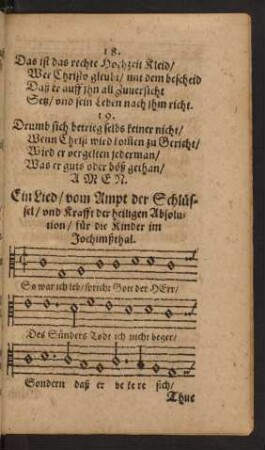 18.
Das ist das rechte Hochzeit Kleid/
Wer Christo gleubt/ mit dem bescheid
Daß er auff ihn all Zuuersicht
Setz/ vnd sein Leben nach ihm richt.
19.
Drumb sich betrieg selbs keiner nicht/
Wenn Christ wird kommen zu Gericht/
Wird er vergelten jederman/
Was er guts oder böß gethan/
AMEN.
Ein Lied/ vom Ampt der Schlüs-
sel/ vnd Krafft der heiligen Absolu-
tion/ für die Kinder im
Jochimßthal.
So war ich leb/ spricht Gott der HErr/
Des Sünders Todt ich nicht beger/
Sondern daß er bekere sich/
Thue